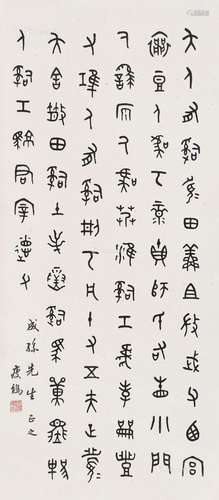 夨人有司眉田鮮且微武父西宮
襄豆人虞丂彔貞師氏右眚小門
人繇原人虞艿淮司工虎孝龠豐
父堆人有司刑丂凡十又五夫正眉
夨舍散田司土屰寅司馬單堒邦
人司工駷君宰德父
成孫先生正之
瘦鶴